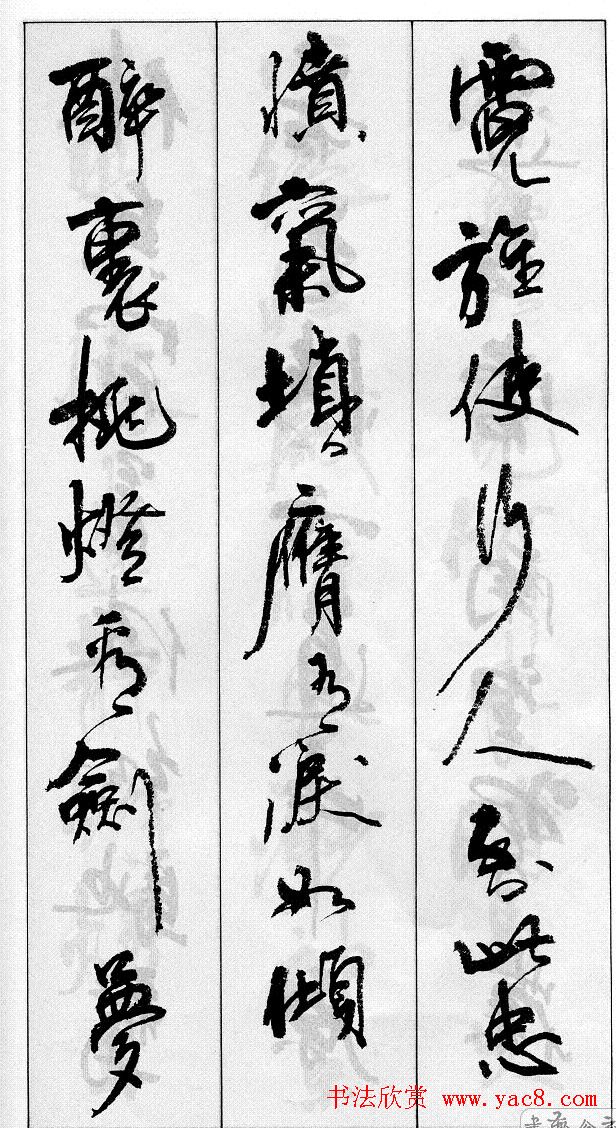 霓旌使行人到此忠
憤氣填膺有淚如傾
醉裏挑燈看劍夢
书法欣赏 www.yac8.com